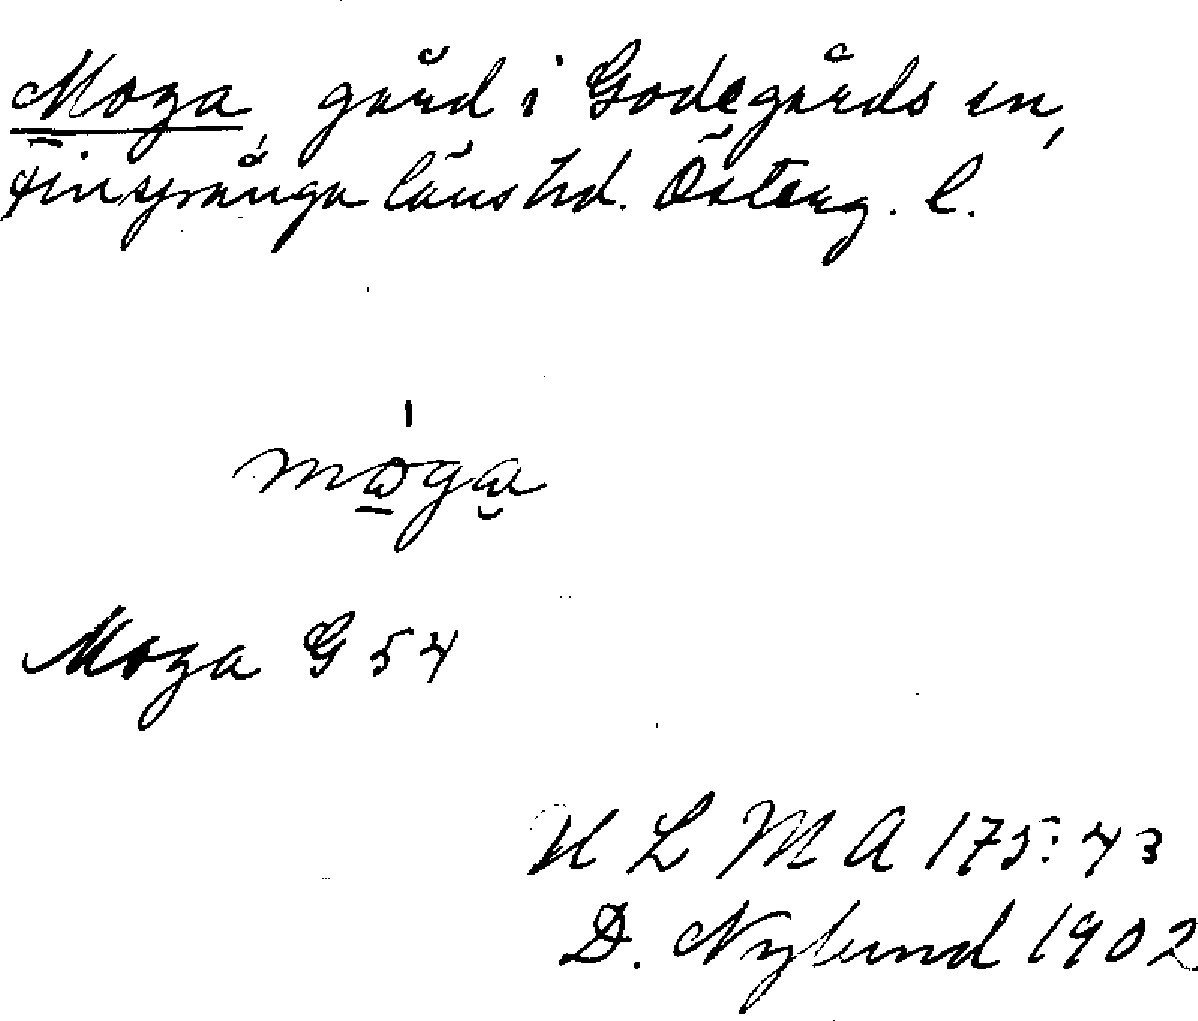 Moga, gård i Godegårds sn,
Finspånga läns hd. Österg. l.
mɷga
Moga G 54
U L M A 175:43
D. Nylund 1902